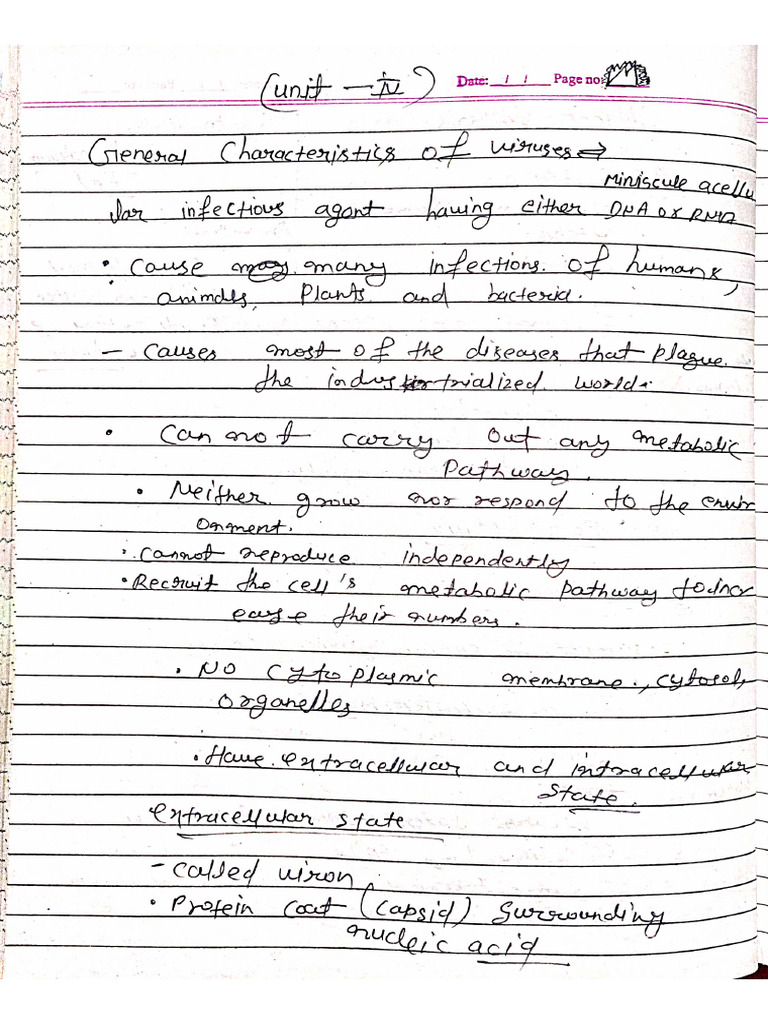 Date: / / Page no:
(unit - iv)
General Characteristics of viruses ⇒
Miniscule acellu
lar infectious agent having either DNA or RNA
• Cause many infections. of humans,
animals, Plants and bacteria.
- Causes most of the diseases that plague.
the industrialized world.
• Can not carry out any metabolic
Pathway.
• Neither grow nor respond to the envir
onment.
• Cannot reproduce independently
• Recruit the cell's metabolic pathway to incr
ease their numbers.
• No Cytoplasmic membrane, cytosol,
organelles
• Have extracellular and intracellular
State.
extracellular state
- Called viron
• Protein Coat (capsid) Surrounding
nucleic acid